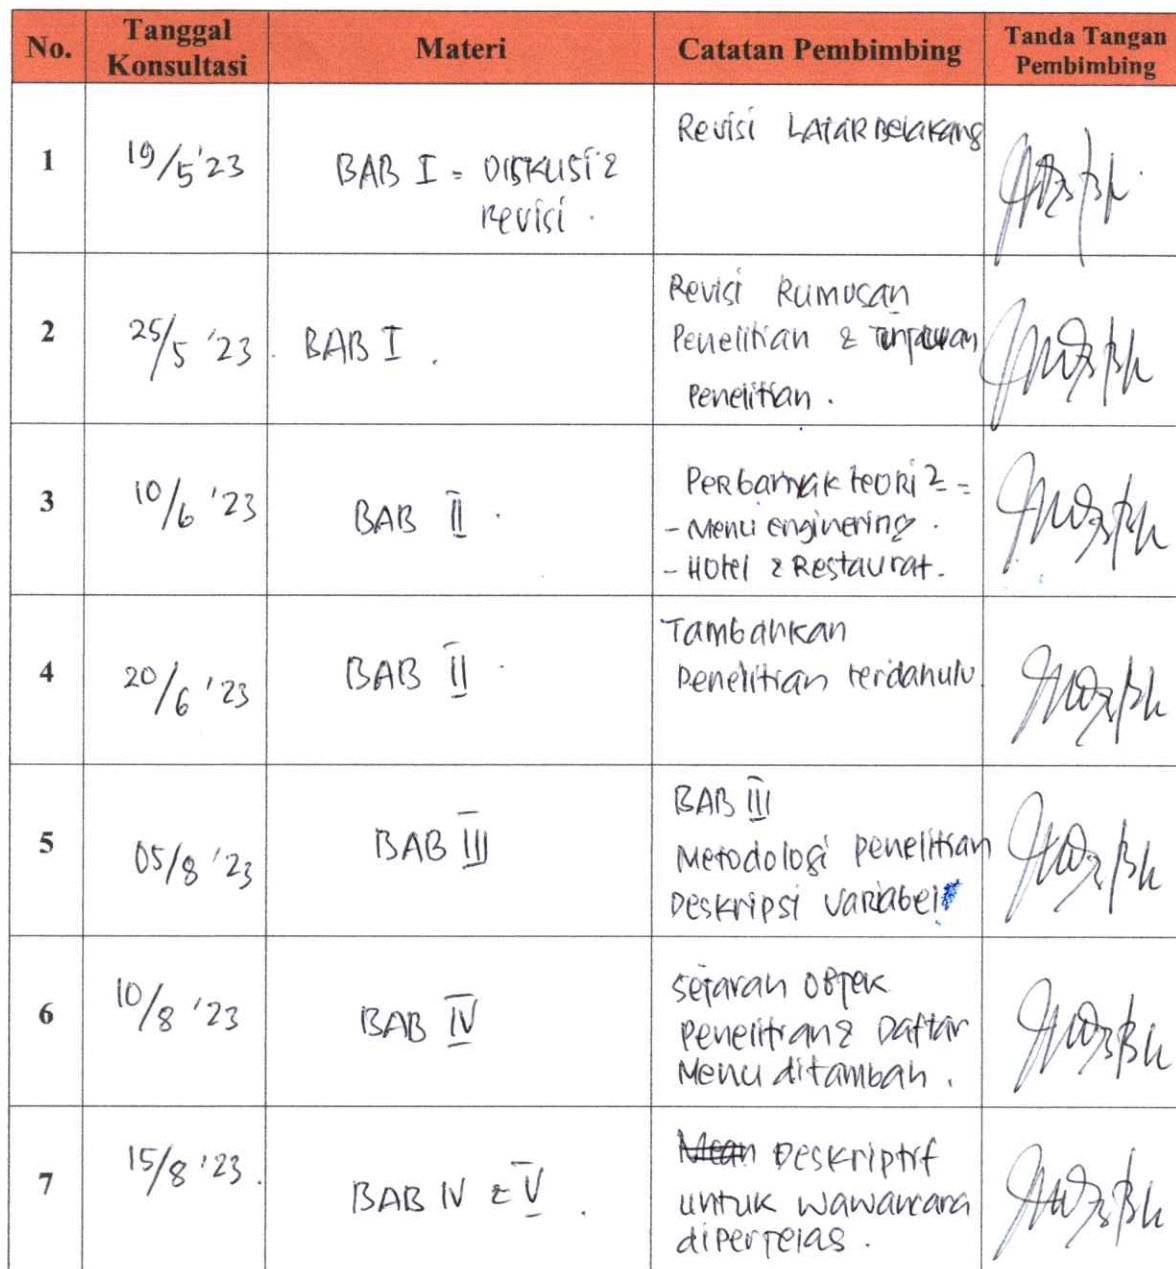 No. Tanggal Konsultasi Materi Catatan Pembimbing Tanda Tangan Pembimbing
1 19/5 '23 BAB I = DISKUSI & Revisi . Revisi Latar Belakang
2 25/5 '23 . BAB I . Revisi Rumusan
Penelitian & Tinjauan
Penelitian .
3 10/6 '23 BAB II . Perbanyak teori2 =
- Menu enginering .
- Hotel & Restaurat .
4 20/6 '23 BAB II . Tambahkan
Penelitian terdahulu
5 05/8 '23 BAB III BAB III
Metodologi penelitian
Deskripsi variabel
6 10/8 '23 BAB IV Sejarah Objek
Penelitian & Daftar
Menu ditambah .
7 15/8 '23 . BAB IV & V . Deskriptif
untuk wawancara
diperjelas .